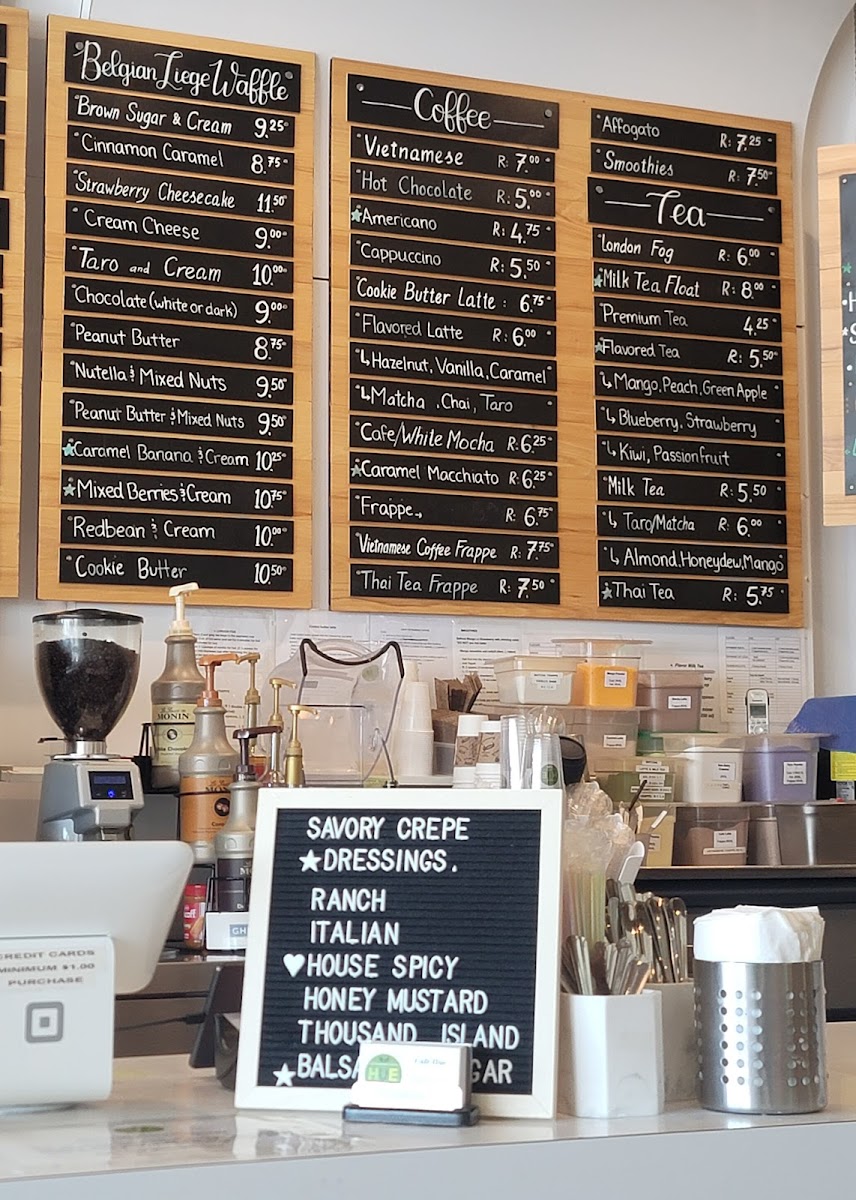 Belgian Liege Waffle
Brown Sugar & Cream 9.25
Cinnamon Caramel 8.75
Strawberry Cheesecake 11.50
Cream Cheese 9.00
Taro and Cream 10.00
Chocolate (white or dark) 9.00
Peanut Butter 8.75
Nutella & Mixed Nuts 9.50
Peanut Butter & Mixed Nuts 9.50
Caramel Banana & Cream 10.25
Mixed Berries & Cream 10.75
Redbean & Cream 10.00
Cookie Butter 10.50
Coffee
Vietnamese R: 7.00
Hot Chocolate R: 5.00
Americano R: 4.75
Cappuccino R: 5.50
Cookie Butter Latte: 6.75
Flavored Latte R: 6.00
↳ Hazelnut, Vanilla, Caramel
↳ Matcha, Chai, Taro
Cafe/White Mocha R: 6.25
Caramel Macchiato R: 6.25
Frappe R: 6.75
Vietnamese Coffee Frappe R: 7.75
Thai Tea Frappe R: 7.50
Affogato R: 7.25
Smoothies R: 7.50
Tea
London Fog R: 6.00
Milk Tea Float R: 8.00
Premium Tea 4.25
Flavored Tea R: 5.50
↳ Mango, Peach, Green Apple
↳ Blueberry, Strawberry
↳ Kiwi, Passionfruit
Milk Tea R: 5.50
↳ Taro/Matcha R: 6.00
↳ Almond, Honeydew, Mango
Thai Tea R: 5.75
MONIN
SAVORY CREPE
★DRESSINGS.
RANCH
ITALIAN
♥HOUSE SPICY
HONEY MUSTARD
THOUSAND ISLAND
★BALSA GAR
CREDIT CARDS
MINIMUM $1.00
PURCHASE
GH